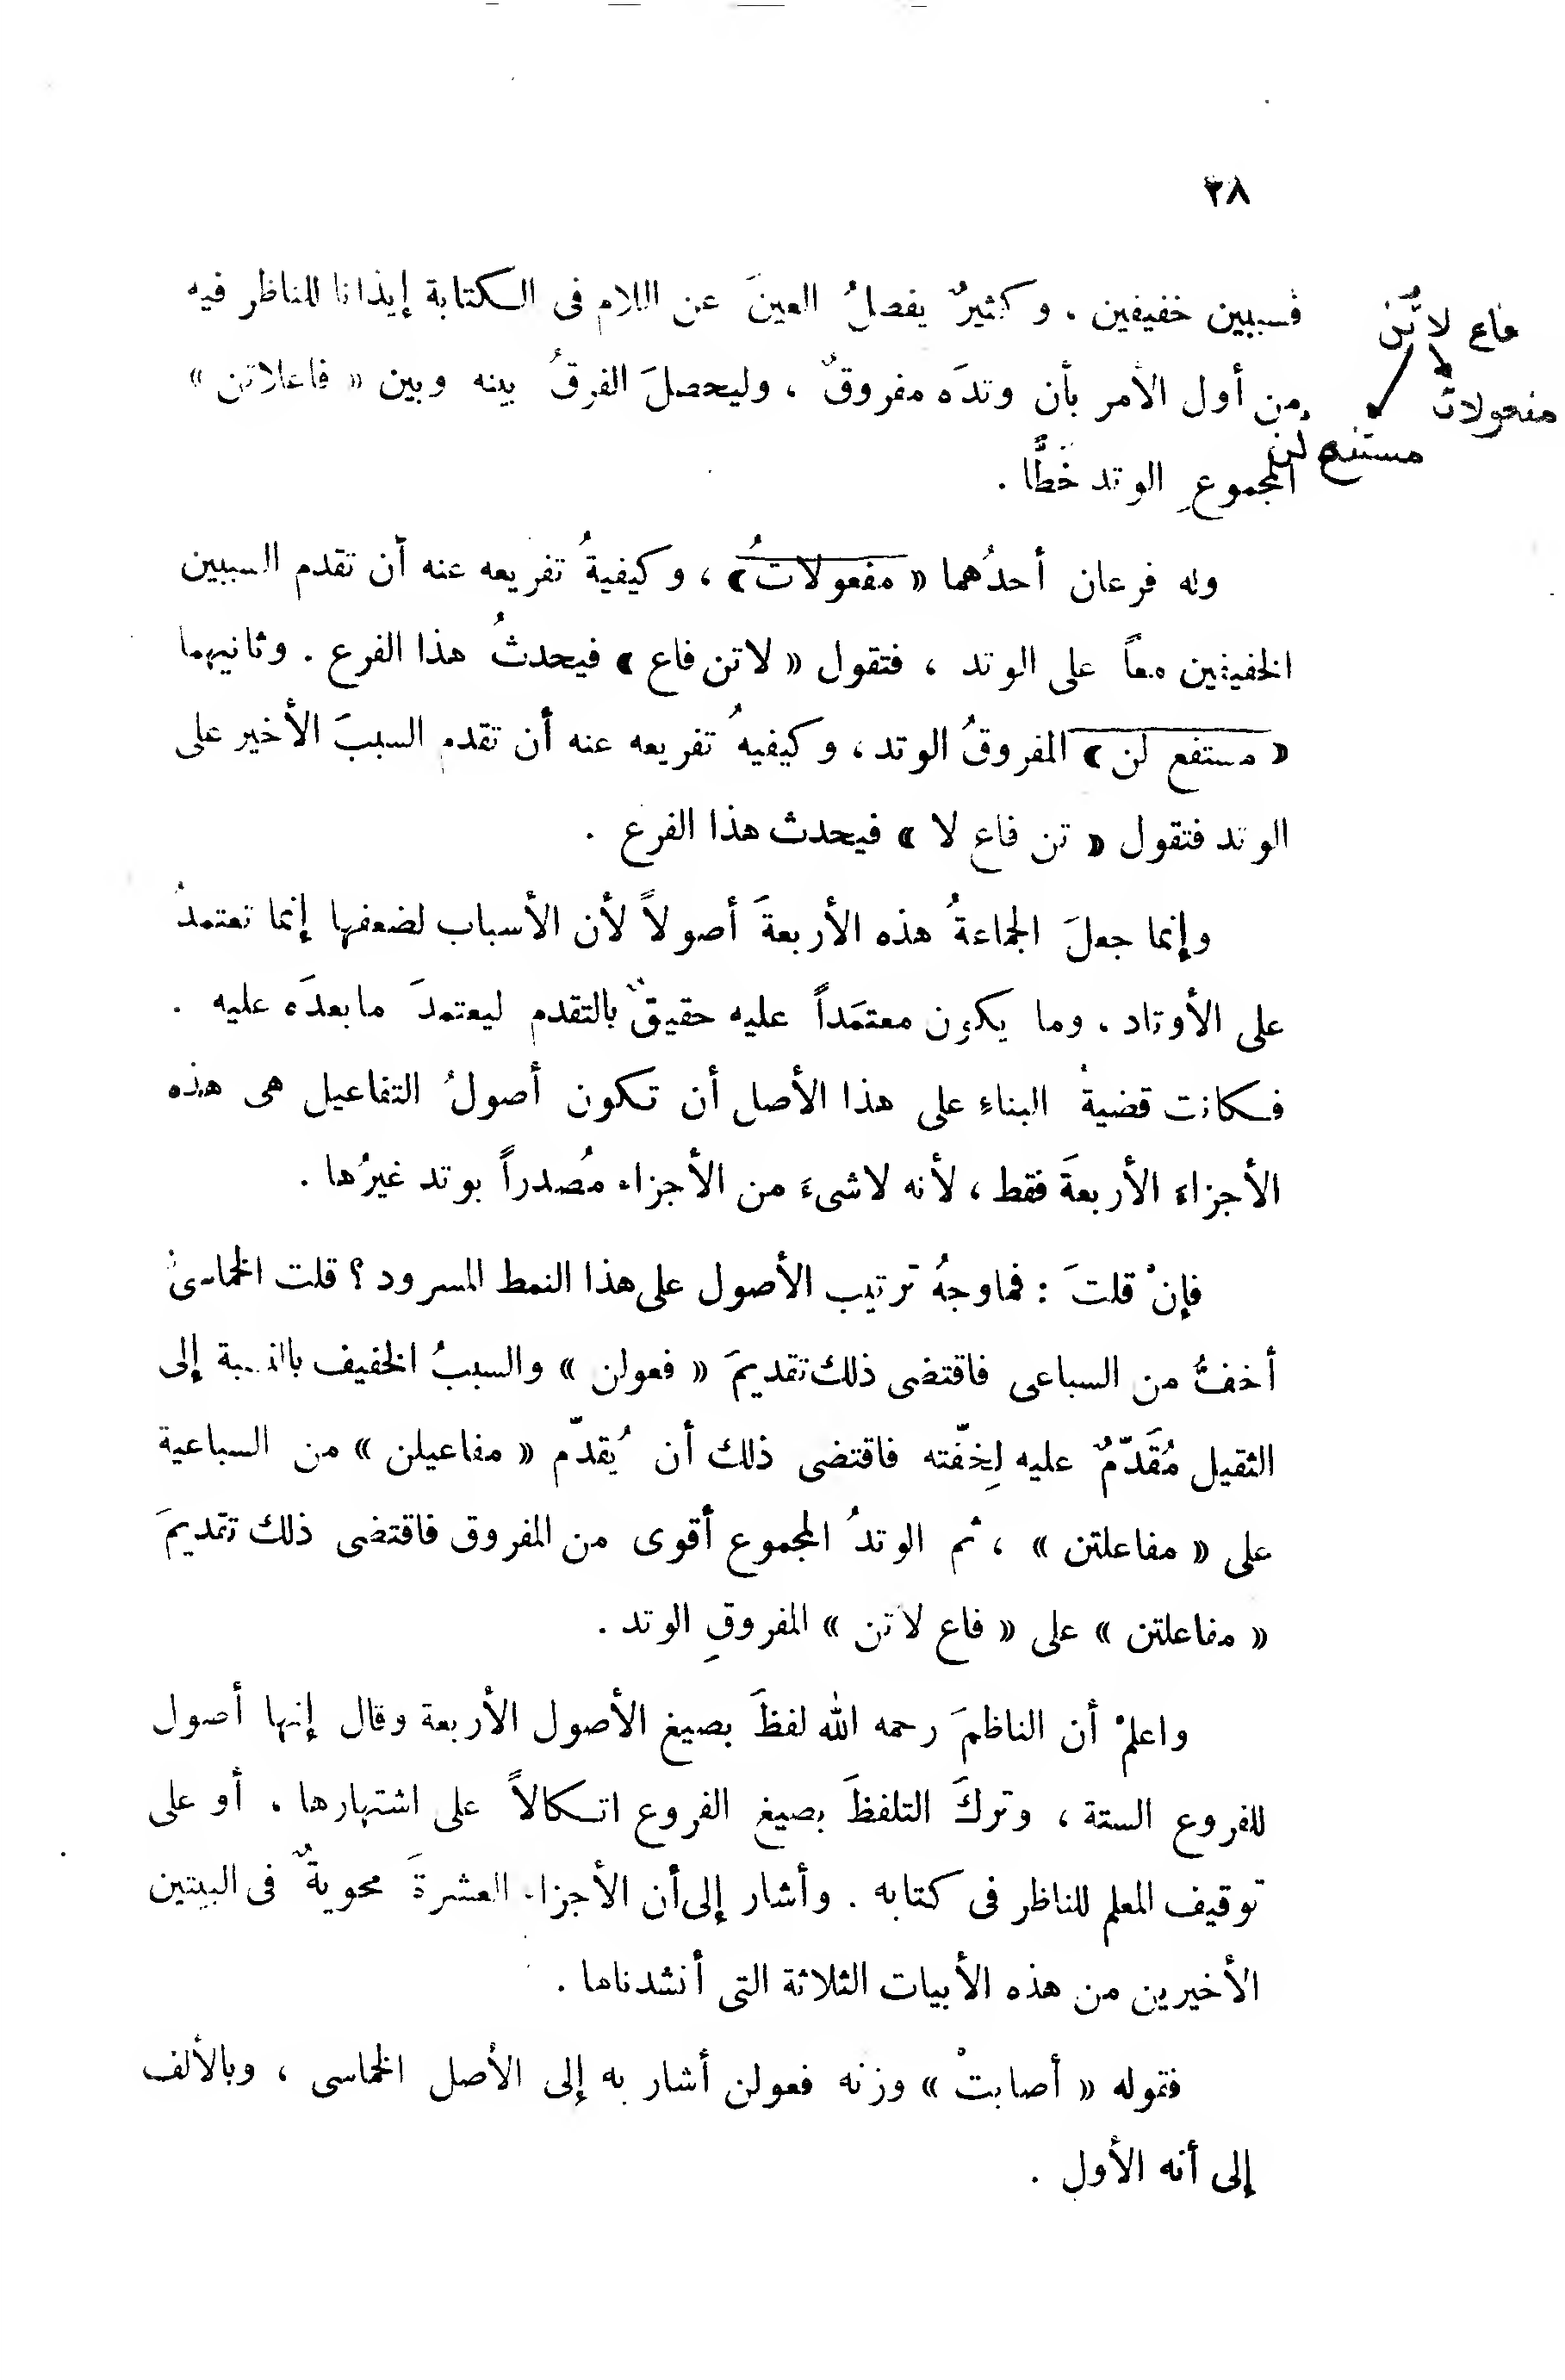 ٢٨
فسببين خفيفين . وكثيرٌ يفصلُ العينَ عن اللام فى الكتابة إيذانا للناظر فيه
من أول الأمر بأن وتدَه مفروقٌ ، وليحصلَ الفرقُ بينه وبين « فاعلاتن »
المجموعِ الوتد خَطًّا .
فاع لاتُن
مفعولاتُ
مستفع لن
وله فرعان أحدُهما « مفعولاتُ » ، وكيفيةُ تفريعه عنه أن تقدم السببين
الخفيفين معاً على الوتد ، فتقول « لاتن فاع » فيحدثُ هذا الفرع . وثانيهما
« مستفع لن » المفروقُ الوتد ، وكيفيهُ تفريعه عنه أن تقدم السببَ الأخير على
الوتد فتقول « تن فاع لا » فيحدث هذا الفرع .
وإنما جعلَ الجماعةُ هذه الأربعةَ أصولاً لأن الأسباب لضعفها إنما تعتمدُ
على الأوتاد . وما يكون معتمَداً عليه حقيقٌ بالتقدم ليعتمدَ مابعدَه عليه .
فكانت قضيةُ البناءِ على هذا الأصل أن تكون أصولُ التفاعيل هى هذه
الأجزاء الأربعةَ فقط ، لأنه لاشىءَ من الأجزاء مُصدراً بوتد غيرُها .
فإنْ قلتَ : فماوجهُ ترتيب الأصول على هذا النمط المسرود ؟ قلت الخماسىُّ
أخفُّ من السباعى فاقتضى ذلك تقديمَ « فعولن » والسببُ الخفيف بالنسبة إلى
الثقيل مُقَدّمٌ عليه لِخفّته فاقتضى ذلك أن يُقدّم « مفاعيلن » من السباعية
على « مفاعلتن » ، ثم الوتدُ المجموع أقوى من المفروق فاقتضى ذلك تقديمَ
« مفاعلتن » على « فاع لاتن » المفروقِ الوتد .
واعلمْ أن الناظمَ رحمه الله لفظَ بصيغ الأصول الأربعة وقال إنها أصول
للفروع الستة ، وتركَ التلفظَ بصيغ الفروع اتكالاً على اشتهارها . أو على
توقيف المعلم للناظر فى كتابه . وأشار إلى أن الأجزاء العشرةَ محويةٌ فى البيتين
الأخيرين من هذه الأبيات الثلاثة التى أنشدناها .
فقوله « أصابتْ » وزنه فعولن أشار به إلى الأصل الخماسى ، وبالألف
إلى أنه الأول .